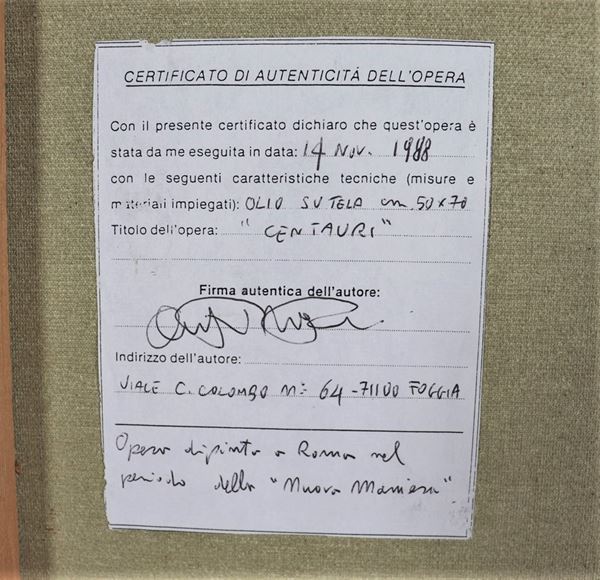 CERTIFICATO DI AUTENTICITÁ DELL'OPERA
Con il presente certificato dichiaro che quest'opera è
stata da me eseguita in data: 14 Nov. 1988
con le seguenti caratteristiche tecniche (misure e
materiali impiegati): OLIO SU TELA cm 50x70
Titolo dell'opera: "CENTAURI"
Firma autentica dell'autore:
Indirizzo dell'autore:
VIALE C. COLOMBO N= 64 - 71100 FOGGIA
Opera dipinta a Roma nel
periodo della "Nuova Maniera"